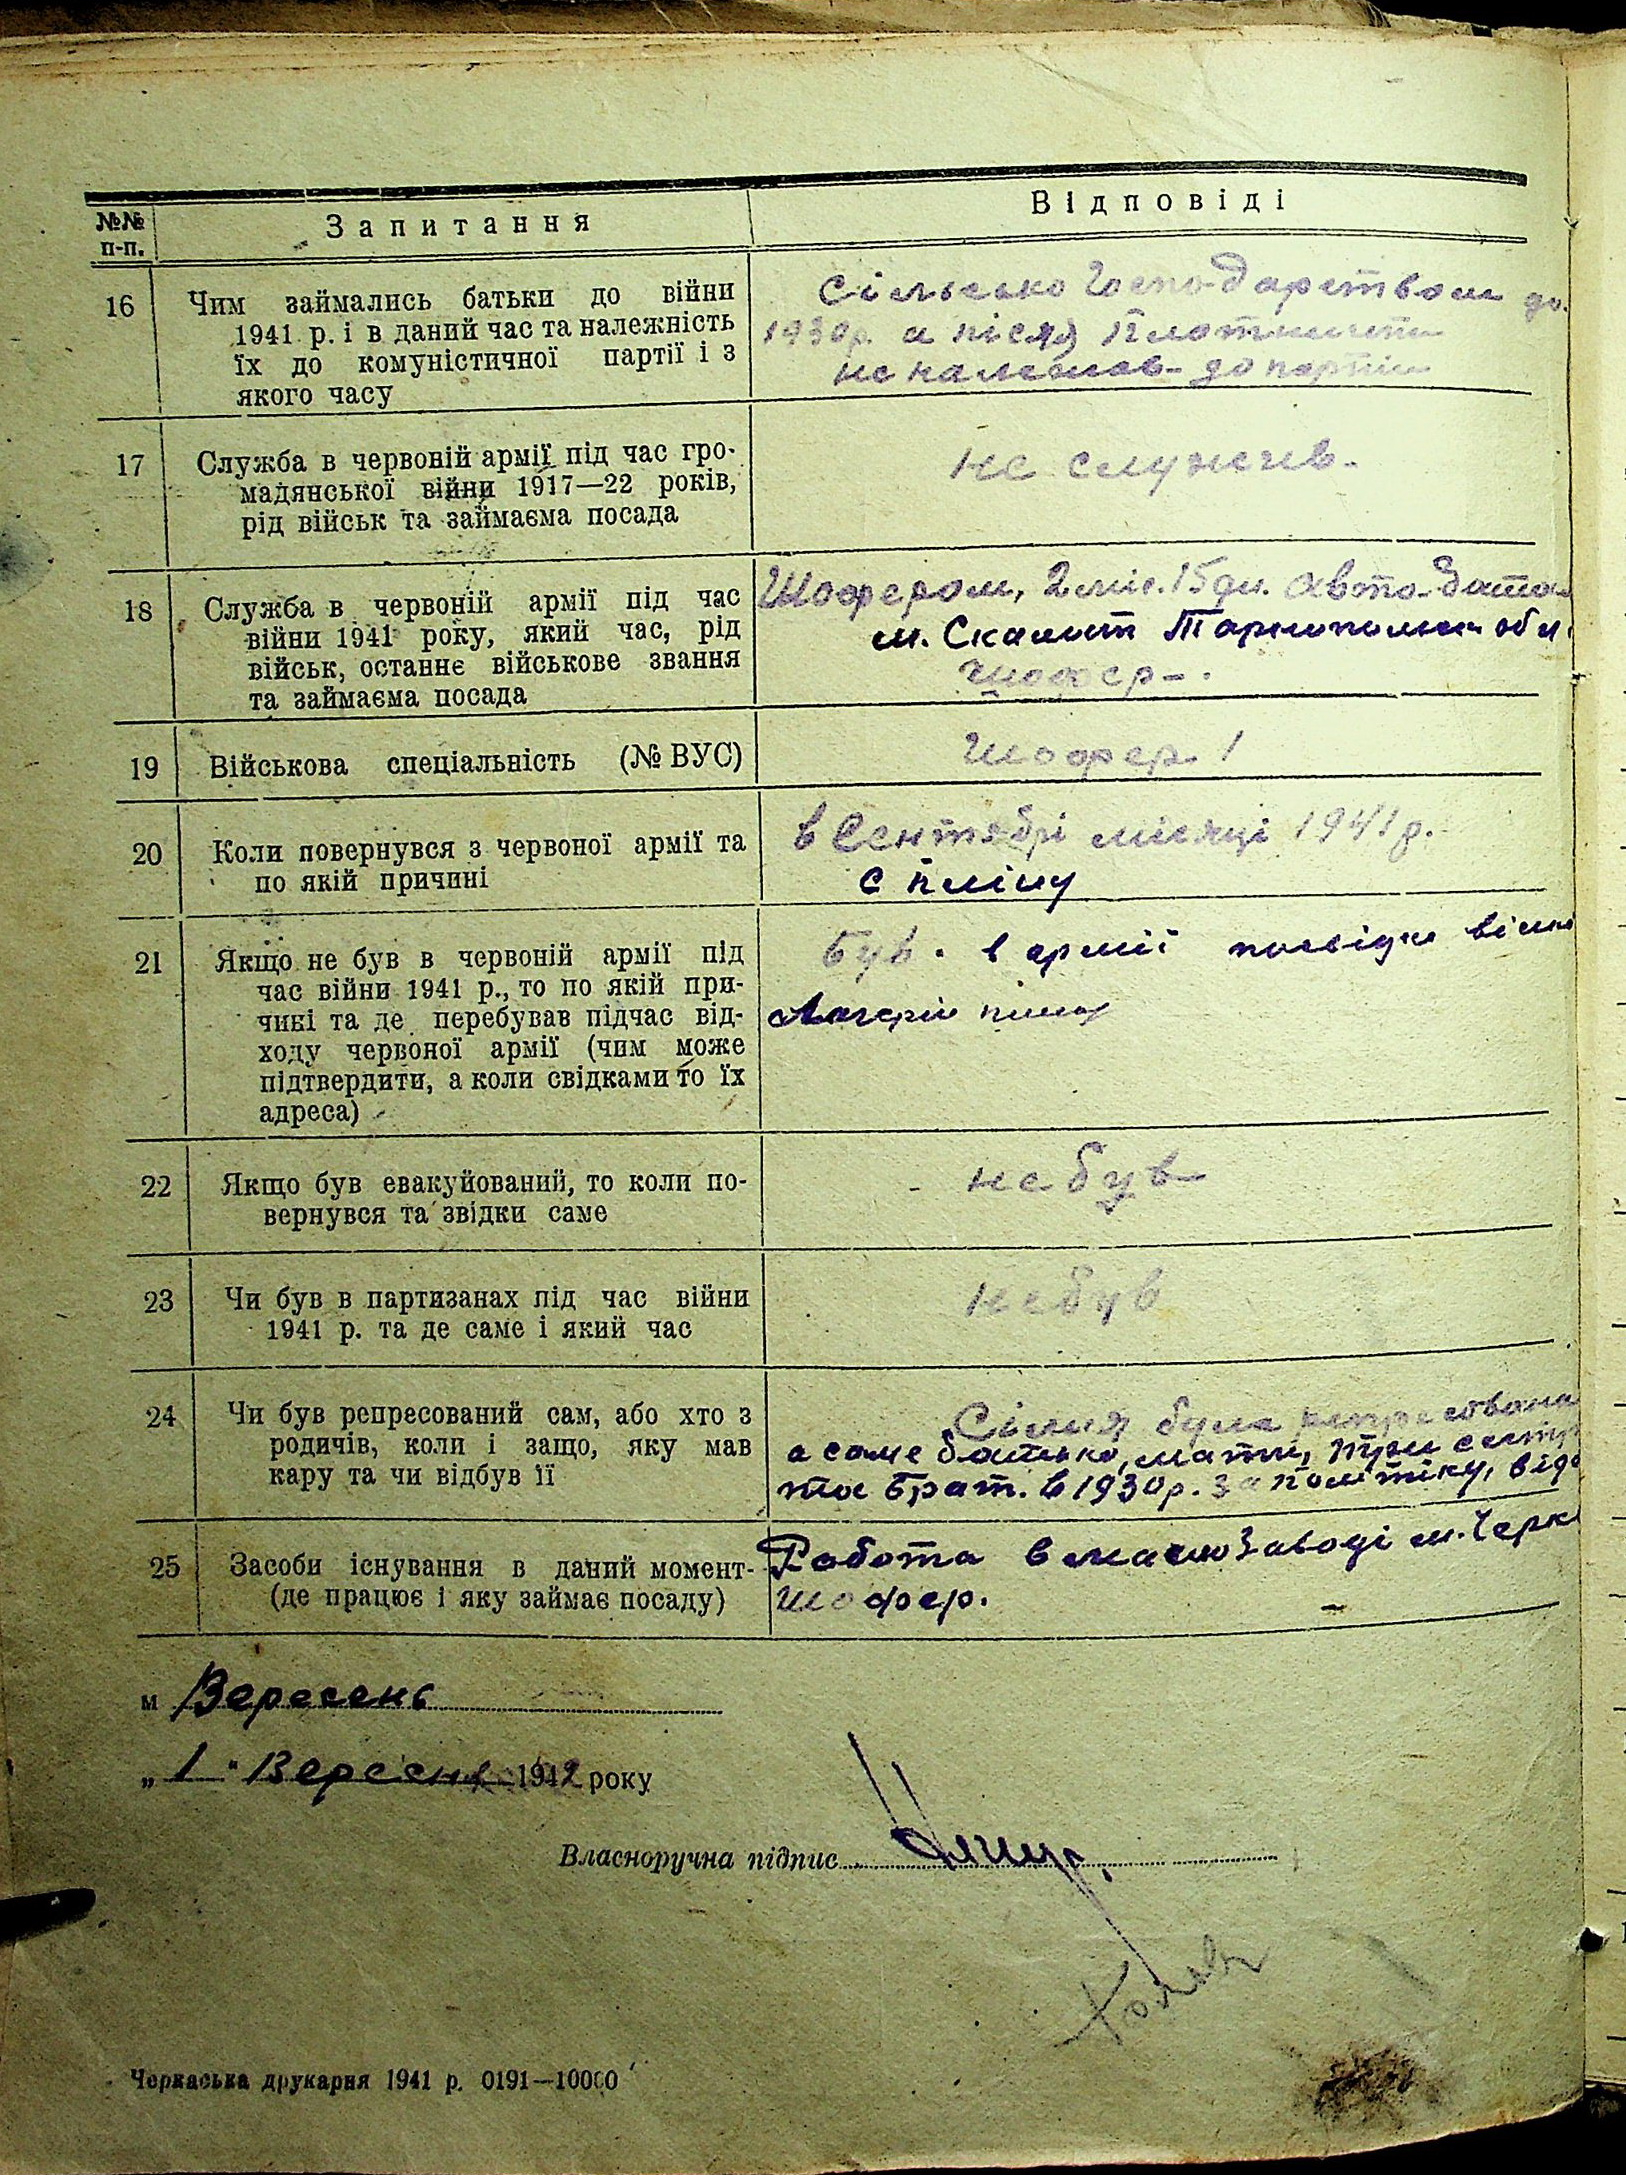 №№ п-п.
Запитання
Відповіді
16
Чим займались батьки до війни
1941 р. і в даний час та належність
їх до комуністичної партії і з
якого часу
Сільсько Господарством до
1930р. а після Плотничати
не належав до партіи
17
Служба в червоній армії під час гро-
мадянської війни 1917—22 років,
рід військ та займаєма посада
не служив
18
Служба в червоній армії під час
війни 1941 року, який час, рід
військ, останнє військове звання
та займаєма посада
Шофером, 2 міс. 15 дн. авто-
м. Скалат Тарнопольск обл.
шофер
19
Військова спеціальність (№ ВУС)
шофер
20
Коли повернувся з червоної армії та
по якій причині
в Сентябрі місяці 1941 р.
с пліну
21
Якщо не був в червоній армії під
час війни 1941 р., то по якій при-
чині та де перебував підчас від-
ходу червоної армії (чим може
підтвердити, а коли свідками то їх
адреса)
був. в армії
22
Якщо був евакуйований, то коли по-
вернувся та звідки саме
не був
23
Чи був в партизанах під час війни
1941 р. та де саме і який час
не був
24
Чи був репресований сам, або хто з
родичів, коли і защо, яку мав
кару та чи відбув її
Сімия була репресована
а саме батько, мати, три сестр
та Брат. в 1930р. за політіку,
25
Засоби існування в даний момент-
(де працює і яку займає посаду)
Робота в маслозаводі м. Черк
шофер.
м Вересень
„ 1 " Вересня 1942 року
Власноручна підпис
Черкаська друкарня 1941 р. 0191—10000